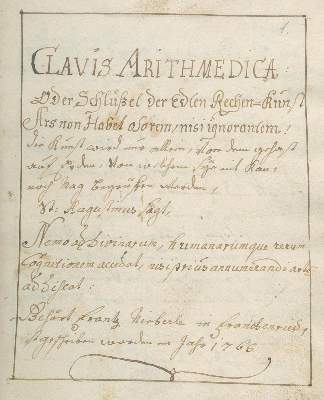 1.
CLAVIS ARITHMEDICA
Oder Schlüßel der Edlen Rechen=Kunst
Ars non Habet osorem, nisi ignorantem!
die Kunst wird nur allein, von dem gehast
auf Erden, von welchem Sÿe nit Kan,
noch mag begriffen werden,
St: Augustinus sagt,
Nemo ad Divinarum, humanarumque rerum
Cognitionem accedat, nisi prius annumerandi artem
addiscat:
Gehört Frantz in
geschriben worden im Jahr 1766